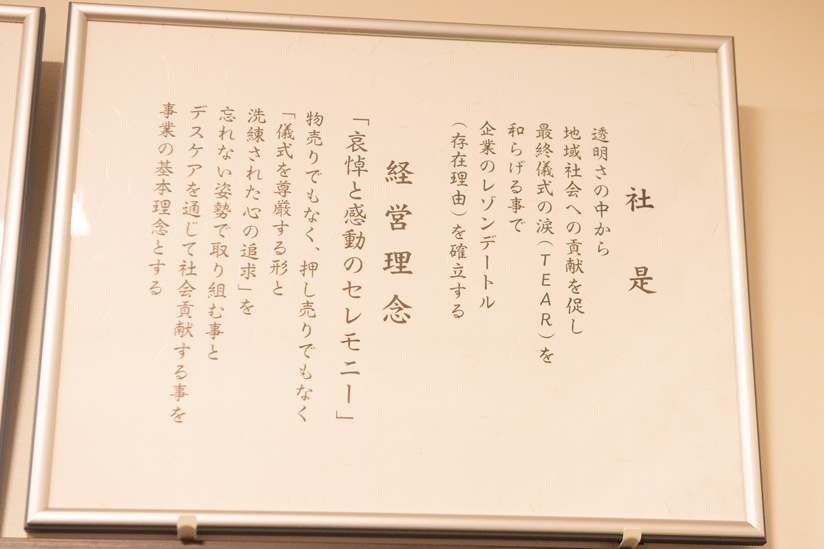 社是
透明さの中から
地域社会への貢献を促し
最終儀式の涙(TEAR)を
和らげる事で
企業のレゾンデートル
(存在理由)を確立する
経営理念
「哀悼と感動のセレモニー」
物売りでもなく、押し売りでもなく
「儀式を尊厳する形と
洗練された心の追求」を
忘れない姿勢で取り組む事と
デスケアを通じて社会貢献する事を
事業の基本理念とする